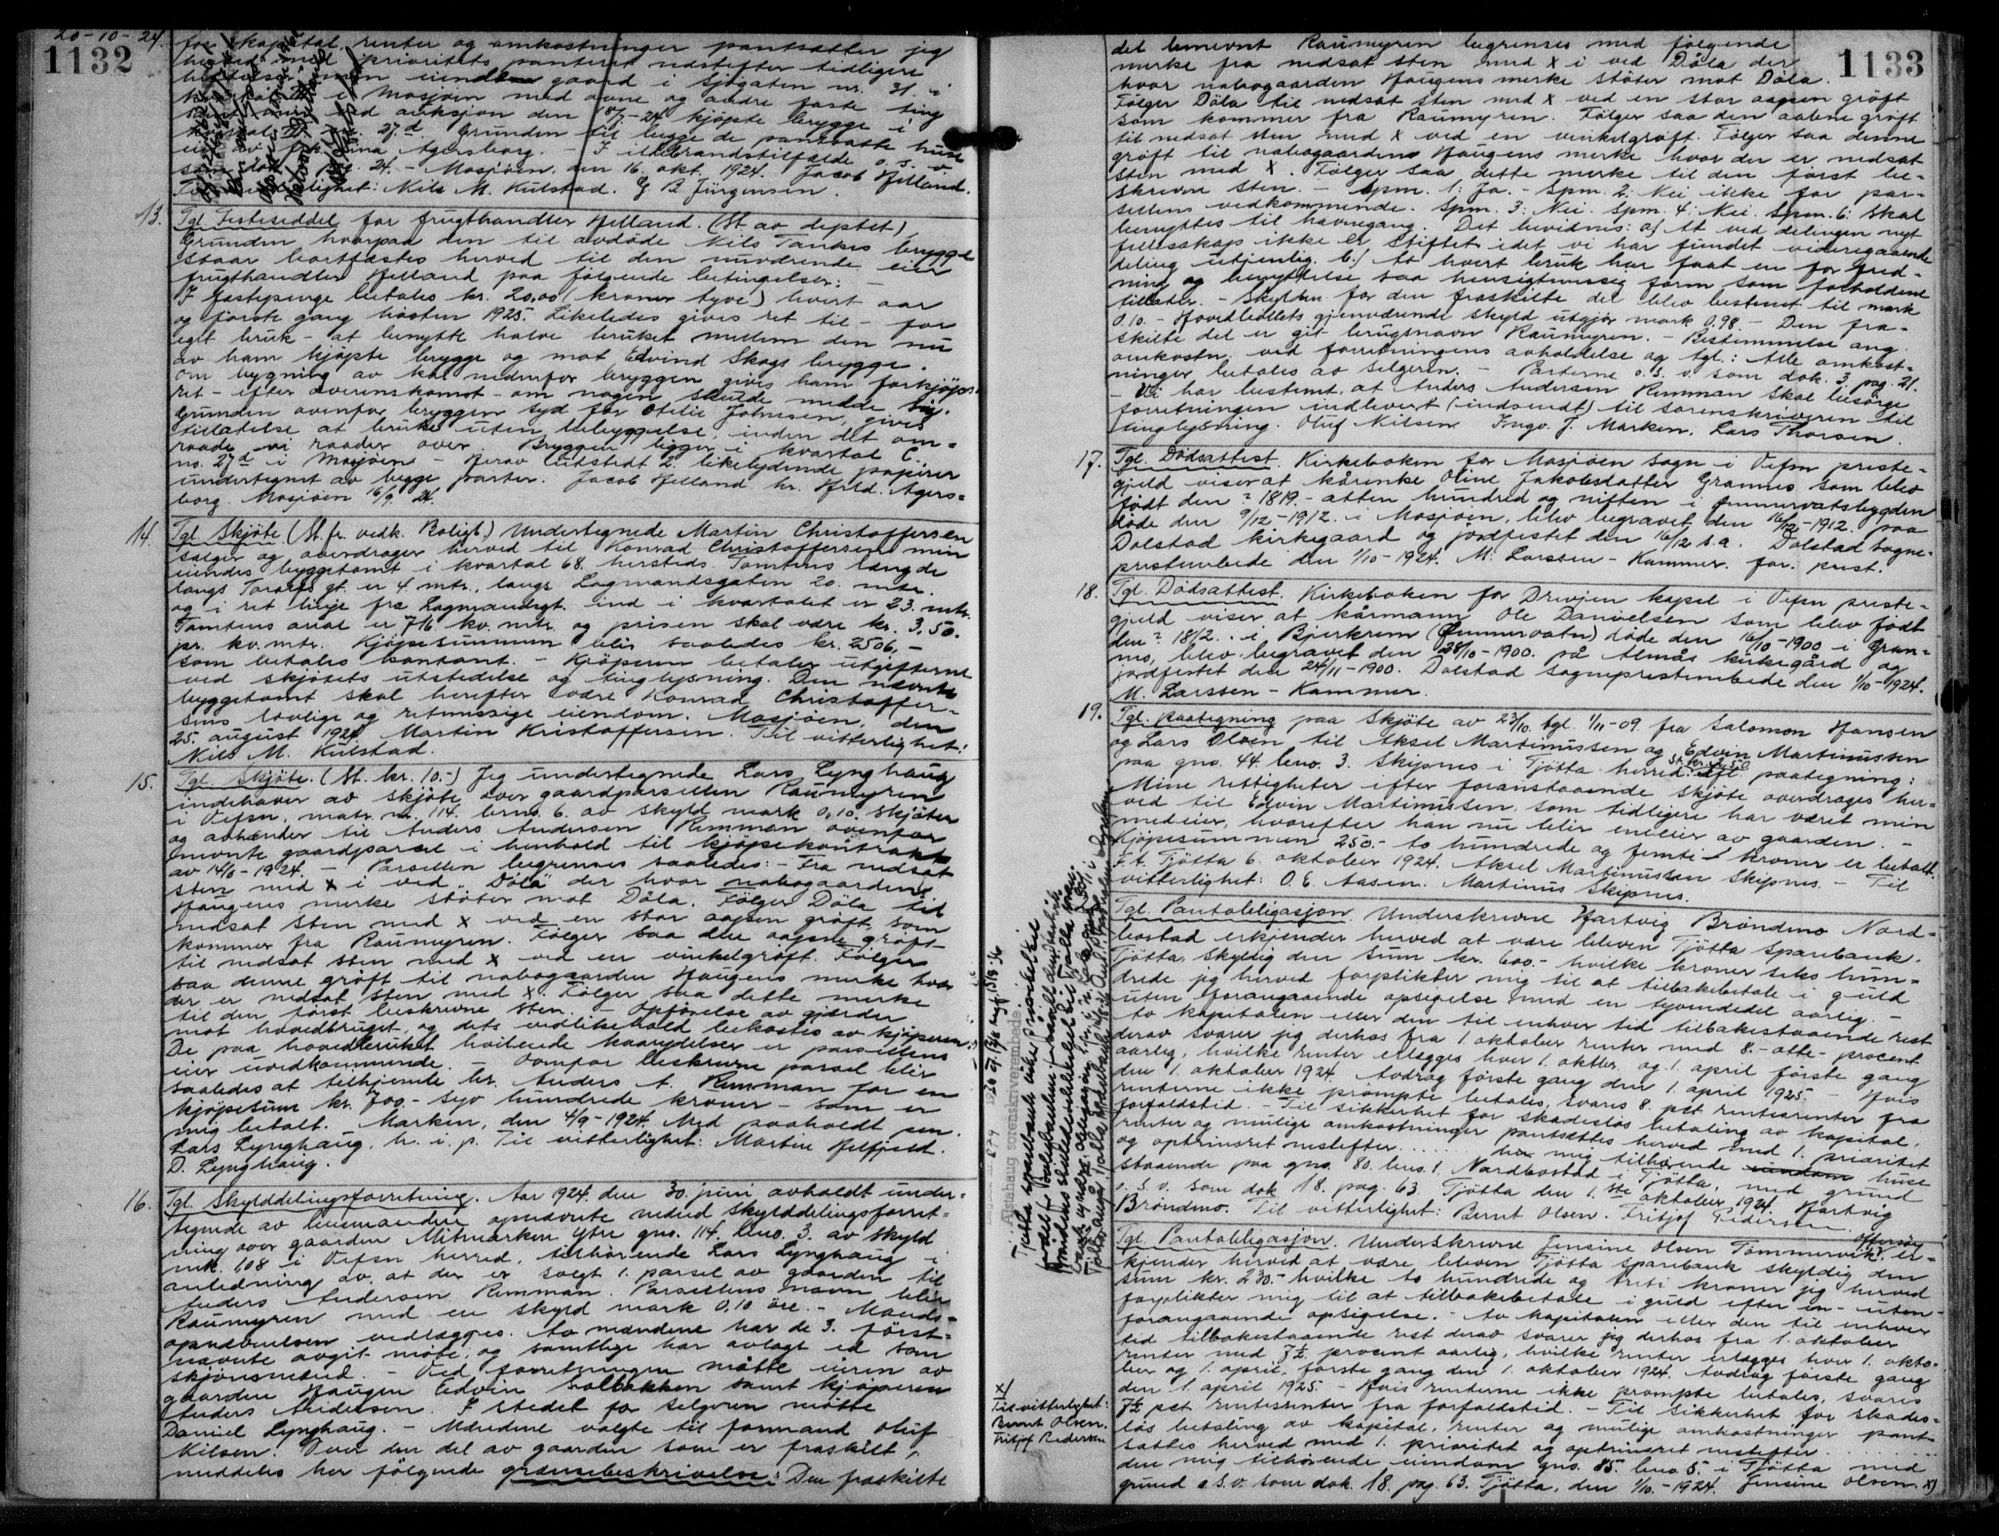 20-10-24.
1132
for kapital, renter og omkostninger pantsætter jeg
herved med prioritets panteret nestefter tidligere
heftelser min eiendom gaard i Sjøgaten nr. 31 i
i Mosjøen med ovne og andre faste ting
samt min ved auksjon den 18/7-24 kjøpte brygge i
27d. Grunden til begge de pantsatte huse
eies av frk. Anna Agersborg. - I ildebrandstilfælde o. s. v.
som dok. pag. 24. - Mosjøen, den 16. okt. 1924. Jacob Hjelland.
Til vitterlighet: Nils M. Kulstad. E. B. Jürgensen.
13. Tgl. Festeseddel for frugthandler Hjelland. (St. av deptet)
Grunden hvorpaa den til avdøde Nils Tankes brygge
staar bortfæstes herved til den nuværende eier
frugthandler Hjelland paa følgende betingelser: -
I fæstepenge betales kr. 20,00 (kroner tyve) hvert aar
og første gang høsten 1925. Likeledes gives ret til - for
eget bruk - at benytte halve bruket mellem den nu
av ham kjøpte brygge og mot Edvind Skogs brygge.
Om bygning av kai nedenfor bryggen gives ham forkjøps-
ret - efter overenskomst - om nogen skulde melde sig.
Grunden ovenfor bryggen syd for Otelie Johnsen, gives
tillatelse at bruke uten bebyggelse, inden det om-
raade vi raader over. Bryggen ligger i kvartal C.
no. 27d i Mosjøen - Herav utstedt 2 likelydende papirer
undertegnet av begge parter. Jacob Hjelland hr. Hrld. Agers-
borg. Mosjøen 16/9 24.
14. Tgl. Skjøte (St. fr. vedk. Boligt.) Undertegnede Martin Christoffersen
sælger og overdrager herved til Konrad Christoffersen min
eiendes byggetomt i kvartal 68 hersteds. Tomtens længde
langs Toraas gt. er 4 mtr., langs Lagmandsgaten 20. mtr.
og i ret linje fra Lagmandsgt. ind i kvartalet er 23. mtr.
Tomtens areal er 716. kv. mtr. og prisen skal være kr. 3,50.
pr. kv. mtr. Kjøpesummen blir saaledes kr. 2506,-
som betales kontant. - Kjøperen betaler utgifterne
ved skjøtets utstedelse og tinglysning. Den nævnte
byggetomt skal herefter være Konrad Christoffer-
sens lovlige og retmæssige eiendom. Mosjøen, den
25. august 1924. Martin Kristoffersen. Til vitterlighet:
Nils M. Kulstad.
15. Tgl. Skjøte. (St. kr. 10.-) Jeg undertegnede Lars Lynghaug
indehaver av skjøte over gaardparsellen Raumyren
i Vefsn, matr. nr. 114. brno. 6. av skyld mark 0,10. skjøter
og avhænder til Anders Andersen Remman ovenfor
nævnte gaardparsel i henhold til kjøpekontrakt
av 14/6-1924. - Parsellen begrenses saaledes: - Fra nedsat
sten med x i ved „Döla" der hvor nabogaardens
Haugens merke støter mot Döla. Følger Döla til
nedsat sten med x ved en stor aapen grøft, som
kommer fra Raumyren. Følger saa den aapne grøft
til nedsat sten med x ved en vinkelgrøft. Følger
saa denne grøft til nabogaarden Haugens merke hvor
der er nedsat sten med x. Følger saa dette merke
til den først beskrevne sten. - Opførelse av gjerder
mot hovedbruket, og dets vedlikehold bekostes av kjøperen.
De paa hovedbruket hvilende kaarydelser er parsellens
eier uvedkommende. - Ovenfor beskrevne parsel blir
saaledes at tilhjemle hr. Anders A. Remman for en
kjøpesum kr. 700,- syv hundrede kroner - som er
mig betalt. Marken, den 4/9-1924. Med paaholdt pen.
Lars Lynghaug, h. i. p. Til vitterlighet: Martin Helfjeld.
D. Lynghaug.
16. Tgl. Skylddelingsforretning. Aar 1924. den 30. juni avholdt under-
tegnede av lensmanden opnævnte mænd skylddelingsforret-
ning over gaarden Mitmarken Ytre gno. 114. brno. 3. av skyld
mk. 1,08 i Vefsn herred, tilhørende Lars Lynghaug i
anledning av at der er solgt 1. parsel av gaarden til
Anders Andersen Remman. Parsellens navn blir
Raumyren med en skyld mark 0,10 øre. - Mands-
opnævnelsen vedlægges. Av mændene har de 3. først-
nævnte avgit møte, og samtlige har avlagt ed som
skjønsmænd. - Ved forretningen møtte eieren av
gaarden Haugen Edvin Solbakken samt kjøperen
Anders Andersen. I stedet for selgeren møtte
Daniel Lynghaug. - Mændene valgte til formand Oluf
Nilsen. Over den del av gaarden som er fraskilt,
meddeles her følgende grænsebeskrivelse: Den fraskilte
1133
del benevnt Raumyren begrenses med følgende
merke fra nedsat sten med x i ved Döla der
hvor nabogaarden Haugens merke støter mot Döla.
Følger Döla til nedsat sten med x ved en stor aapen grøft
som kommer fra Raumyren. Følger saa den aapne grøft
til nedsat sten med x ved en vinkelgrøft. Følger saa denne
grøft til nabogaardens Haugens merke hvor der er nedsat
sten med x. Følger saa dette merke til den først be-
skrevne sten. - Spm. 1: Ja. - Spm. 2: Nei ikke for par-
sellens vedkommende. Spm. 3: Nei. Spm. 4: Nei. Spm. 6: Skal
benyttes til havnegang. Det bevidnes: a) At ved delingen nyt
fellesskap ikke er stiftet idet vi har fundet videregaaende
deling utjenlig. b.) At hvert bruk har faat en for gred-
ning og benyttelse saa hensigtsmæssig form som forholdene
tillater. - Skylden for den fraskilte del blev bestemt til mark
0.10. - Hovedbølets gjenværende skyld utgjør mark 0.98. - Den fra-
skilte del er git bruksnavn Raumyren. - Bestemmelse ang.
omkostn. ved forretningens avholdelse og tgl.: Alle omkost-
ninger betales av selgeren. - Parterne o. s. v. som dok. 3, pag. 21.
- Vi har bestemt, at Anders Andersen Remman skal besørge
forretningen indlevert (-indsendt) til sorenskriveren til
tinglysning. Oluf Nilsen. Ingv. J. Marken. Lars Thorsen.
17. Tgl. Dødsattest. Kirkeboken for Mosjøen sogn i Vefsn preste-
gjeld viser at kårenke Oline Jakobsdatter Grannes som blev
født den ? 1819. - atten hundred og nitten - i Ømmervatsbygden
døde den 9/12-1912. i Mosjøen, blev begravet den 16/12-1912. paa
Dolstad kirkegaard og jordfestet den 16/12 s. a. Dolstad sogne-
prestembede den 1/10-1924. M. Larssen-Kammer. for. prest.
18. Tgl. Dødsattest. Kirkeboken for Drevjen kapel i Vefsn preste-
gjeld viser at kårmann Ole Danielsen som blev født
den ? 1812. . i Bjerkrem (Ømmervatn) døde den 16/10-1900 i Gran-
mo, blev begravet den 28/10-1900. på Almås kirkegård og
jordfestet den 24/11-1900. Dolstad sogneprestembede den 1/10-1924.
M. Larssen-Kammer.
19. Tgl. paategning paa skjøte av 23/10. tgl. 1/11-09. fra Salomon Hansen
og Lars Olsen til Aksel Martinussen og Edvin Martinussen
paa gno. 44. brno. 3. Skipnes i Tjøtta herred: St. kr. 2,50 paategning:
Mine rettigheter efter foranstaaende skjøte overdrages her-
ved til Edvin Martinussen, som tidligere har været min
medeier, hvorefter han nu blir eneeier av gaarden. -
Kjøpesummen 250.- to hundrede og femti - kroner er betalt.
P. t. Tjøtta 6. oktober 1924. Aksel Martinussen Skipnes. - Til
vitterlighet: O. E. Aasen. Martinus Skipnes.
Tgl. Pantobligasjon. Underskrevne Hartvig Brøndmo Nord-
bostad erkjender herved at være bleven Tjøtta sparebank,
Tjøtta, skyldig den sum kr. 600.- hvilke kroner seks hun-
drede jeg herved forplikter mig til at tilbakebetale i guld
uten forangaaende opsigelse med en tyvendedel aarlig. -
Av kapitalen eller den til enhver tid tilbakestaaende rest
derav svarer jeg derhos fra 1. oktober renter med 8.- otte - procent
aarlig, hvilke renter erlægges hver 1. oktbr. og 1. april første gang
den 1. oktober 1924. Avdrag første gang den 1. april 1925. - Hvis
renterne ikke prompte betales, svares 8. pct. rentesrenter fra
forfaldstid. - Til sikkerhet for skadesløs betaling av kapital,
renter og mulige omkostninger pantsættes herved med 1. prioritet
og optrinsret nestefter ...... mig tilhørende huse
staaende paa gno. 80. brno. 1. Nordbostad i Tjøtta, med grund
o. s. v. som dok 18. pag. 63. Tjøtta den 1. ste oktober 1924. Hartvig
Brøndmo. Til vitterlighet: Bernt Olsen. Fritjof Pedersen.
Tgl. Pantobligasjon. Underskrevne Jensine Olsen Tømmervik, Offersøy er-
kjender herved at være bleven Tjøtta sparebank skyldig den
sum kr. 230.- hvilke to hundrede og treti kroner jeg herved
forplikter mig til at tilbakebetale i guld efter en - uten -
forangaaende opsigelse. - Av kapitalen eller den til enhver
tid tilbakestaaende rest derav svarer jeg derhos fra 1. oktober
renter med 7½ procent aarlig, hvilke renter erlægges hver 1. okto-
ber og 1. april, første gang den 1. oktober 1924. Avdrag første gang
den 1. april 1925. - Hvis renterne ikke prompte betales, svares
7½ pct rentesrenter fra forfaldstid. - Til sikkerhet for skades-
løs betaling av kapital, renter og mulige omkostninger pant-
sættes herved med 1. prioritet og optrinsret nestefter ......
den mig tilhørende eiendom gno. 85. brno. 5. i Tjøtta med
grund o. s. v. som dok. 18. pag. 63. Tjøtta, den 1/10.-1924. Jensine Olsen. x)
x/
Til vitterlighet:
Bernt Olsen.
Fritjof Pedersen